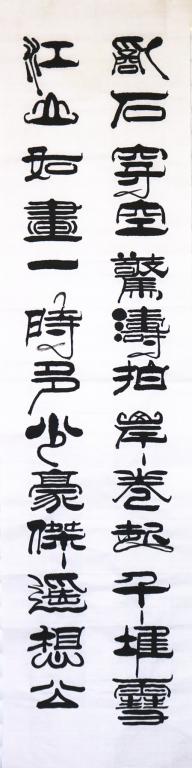 亂石穿空驚濤拍岸卷起千堆雪
江山如畫一時多少豪傑遥想公